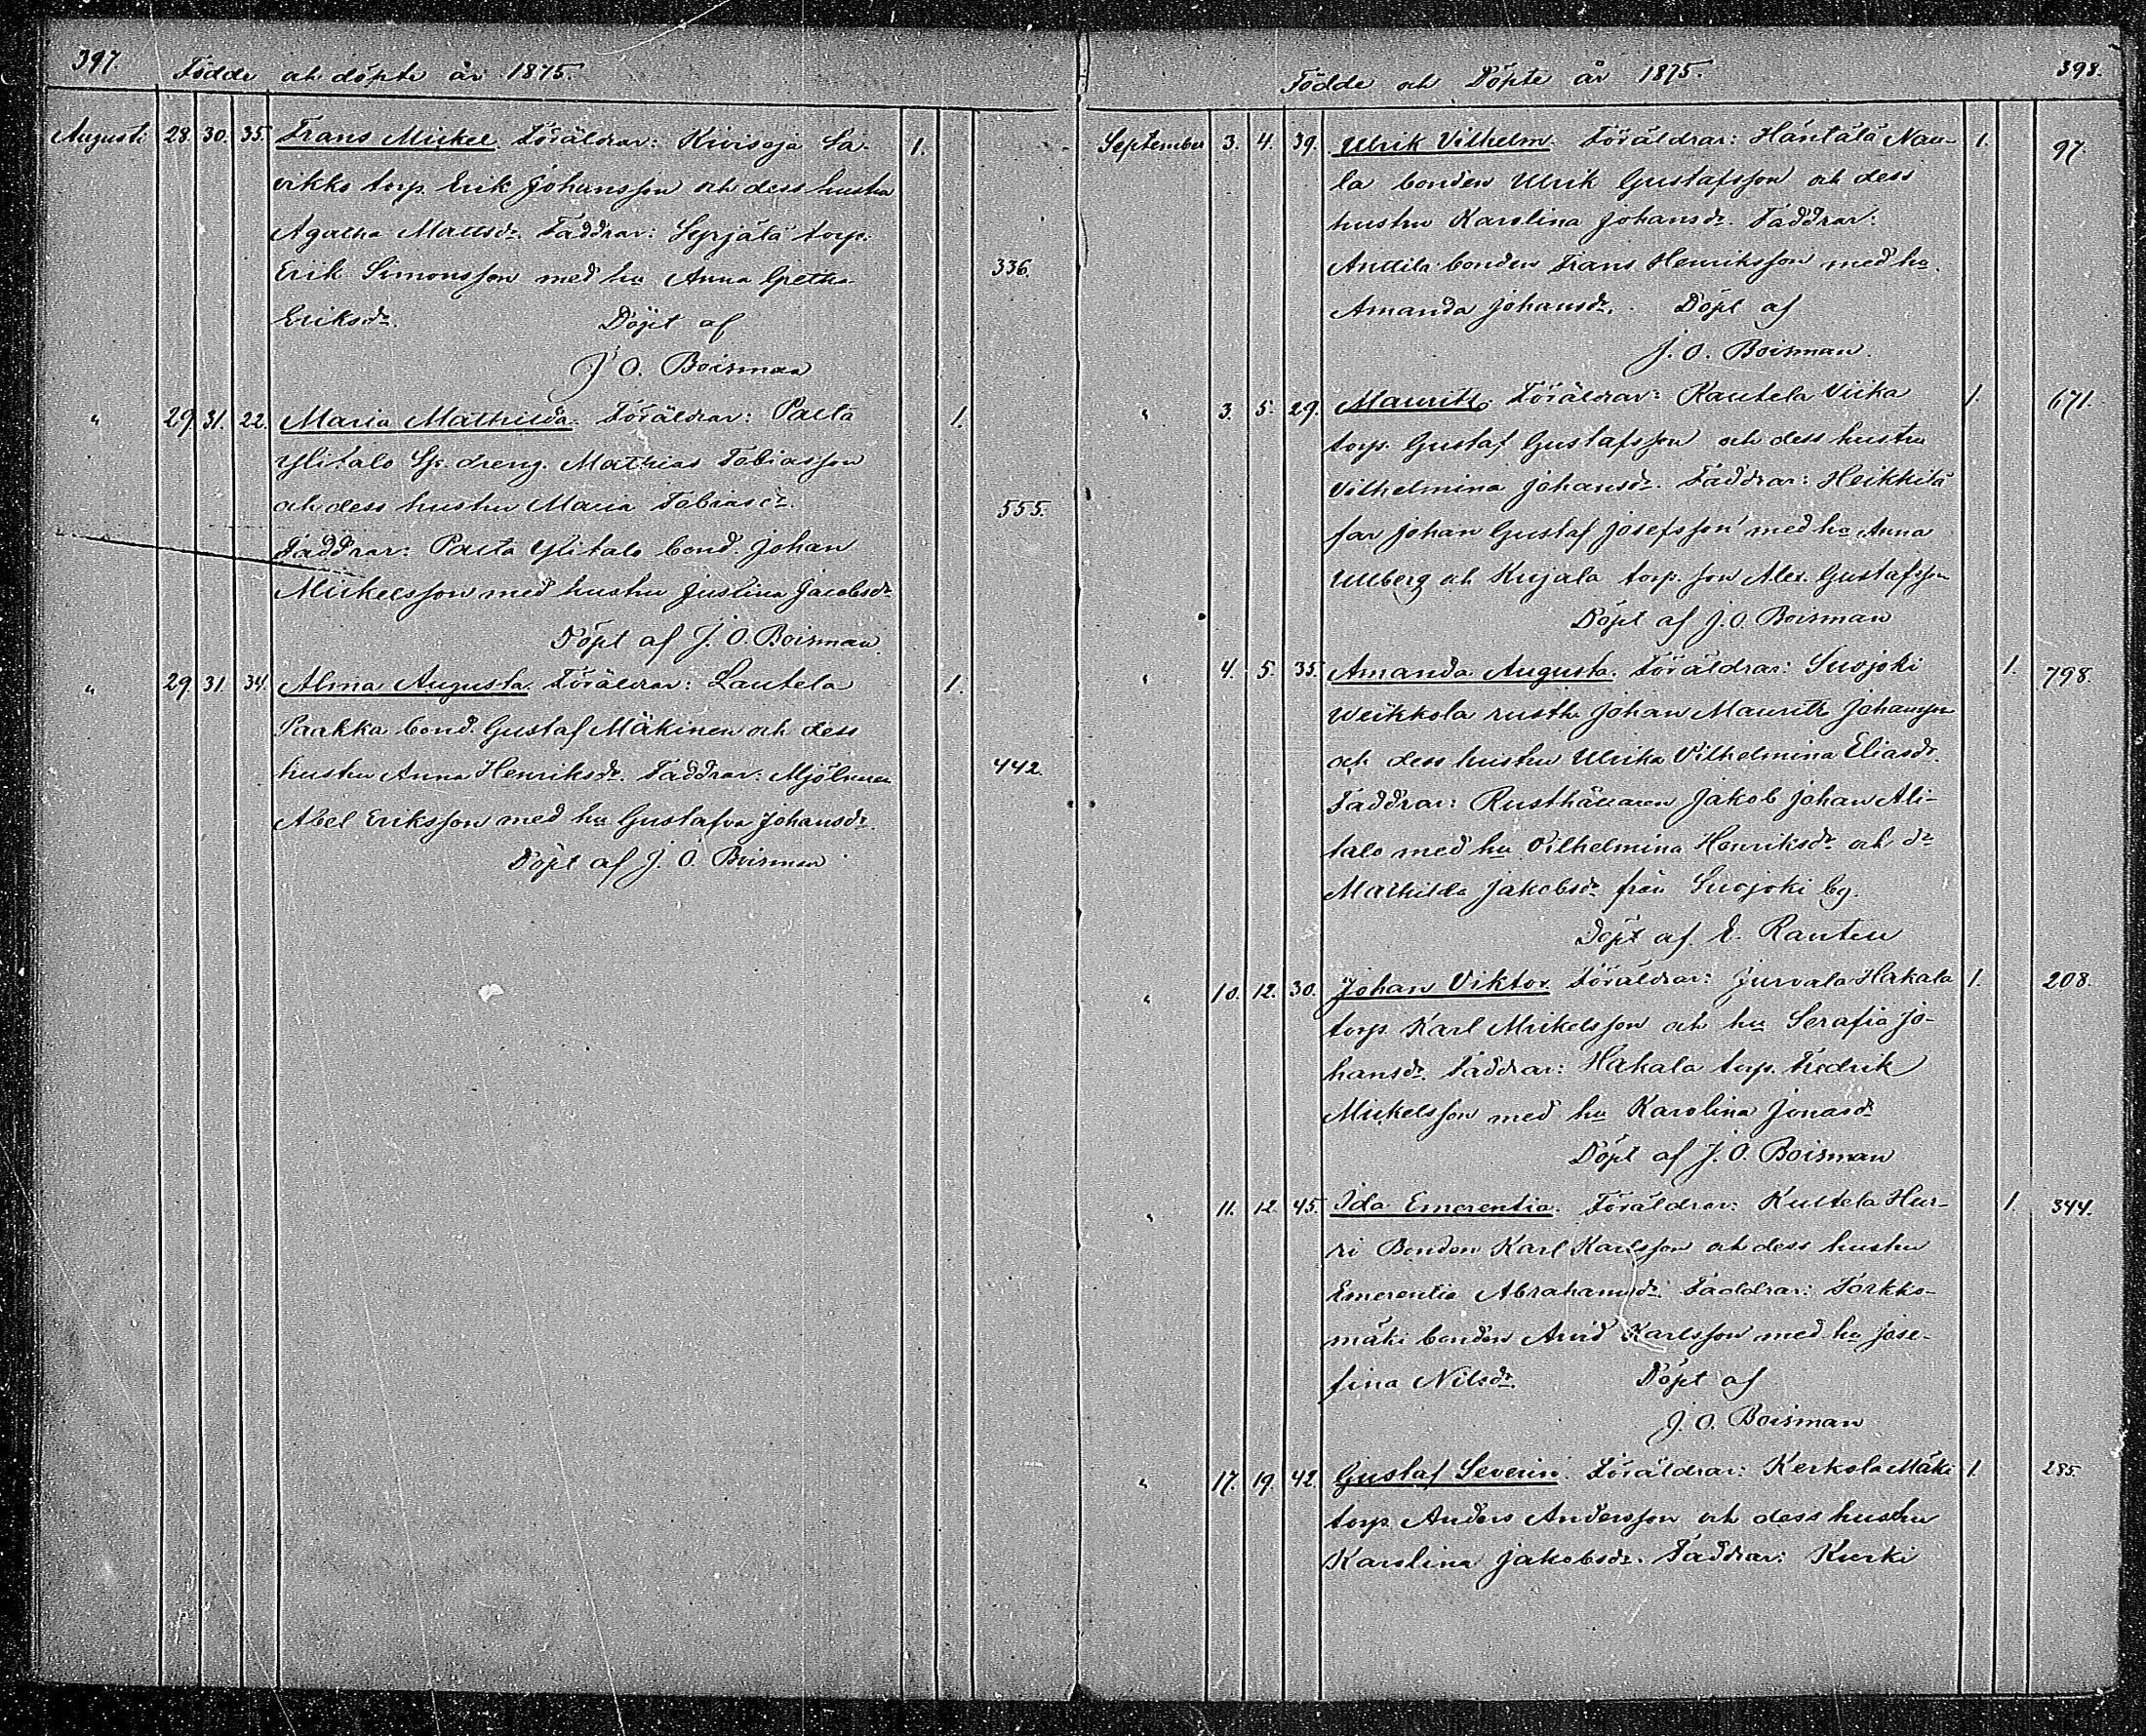 397.
Födde och döpte år 1875.
Augusti 28. 30. 35. Frans Mickel. Föräldrar: Kivioja La- 1.
vikko torp. Erik Johansson och dess hustru
Agatha Mattsdr. Faddrar: Syrjälä torp.
Erik Simonsson med hu Anna Gretha 336.
Eriksdr. Döpt af
J. O. Boisman
" 29. 31. 22. Maria Mathilda. Föräldrar: Palta 1.
Ylitalo dreng. Mathias Tobiasson
och dess hustru Maria Tobiasdr. 555.
Faddrar: Palta Ylitalo bond. Johan
Mickelsson med hustru Justina Jacobsdr
Döpt af J. O. Boisman.
" 29. 31. 34. Alma Augusta. Föräldrar: Lautela 1.
Paakka bond. Gustaf Mäkinen och dess
hustru Anna Henriksdr. Faddrar: Mjölnaren 442.
Abel Eriksson med hu Gustafva Johansdr.
Döpt af J. O. Boisman
Födde och Döpte år 1875. 398.
September 3. 4. 39. Ulrik Vilhelm. Föräldrar: Häntälä Nau- 1. 97.
la bonden Ulrik Gustafsson och dess
hustru Karolina Johansdr. Faddrar:
Anttila bonden Frans Henriksson med hu
Amanda Johansdr. Döpt af
J. O. Boisman.
" 3. 5. 29. Mauritz. Föräldrar: Rautela Viika 1. 671.
torp. Gustaf Gustafsson och dess hustru
Vilhelmina Johansdr. Faddrar: Heikkilä
far Johan Gustaf Josefsson med hu Anna
Ullberg och Kujala torp. son Alex. Gustafsson
Döpt af J. O. Boisman
" 4. 5. 35. Amanda Augusta. Föräldrar: Suojoki 1. 798.
Weikkola rusth. Johan Mauritz Johansson
och dess hustru Ulrika Vilhelmina Eliasdr.
Faddrar: Rusthållaren Jakob Johan Ali-
talo med hu Vilhelmina Henriksdr och dr
Mathilda Jakobsdr från Suojoki by.
Döpt af E. Rauten
" 10. 12. 30. Johan Viktor. Föräldrar: Jurvala Hakala 1. 208.
torp. Karl Mickelsson och hu Serafia Jo-
hansdr. Faddrar: Hakala torp. Fredrik
Mickelsson med hu Karolina Jonasdr
Döpt af J. O. Boisman
" 11. 12. 45. Ida Emerentia. Föräldrar: Kuttela Hur- 1. 344.
ri Bonden Karl Karlsson och dess hustru
Emerentia Abrahamsdr. Faddrar: Torkko-
mäki bonden Arvid Karlsson med hu Jose-
fina Nilsdr. Döpt af
J. O. Boisman
" 17. 19. 42. Gustaf Severin. Föräldrar: Kerkola Mäki 1. 285.
torp. Anders Andersson och dess hustru
Karolina Jakobsdr. Faddrar: Kurki